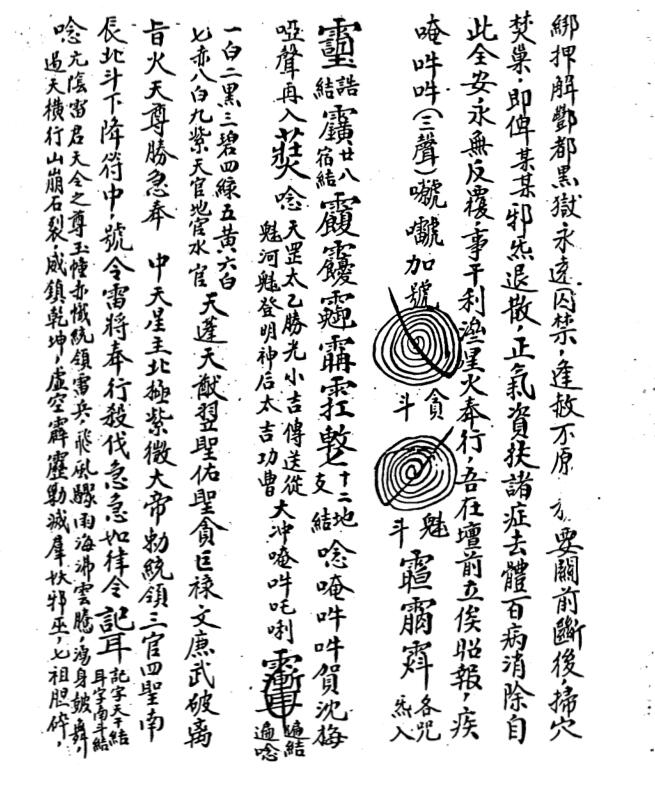 綁押解酆都黑獄永遠囚禁,逢赦不原 要關前斷後,掃穴
焚巢,即俾某某邪炁退散,正氣資扶諸症去體百病消除自
此全安永無反覆,事干利濟星火奉行,吾在壇前立俟昭報,疾
唵吽吽(三聲) 加號 貪斗 魁斗 各咒炁入
誥結 廿八宿結 十二地支結 唸唵吽吽賀沈梅
啞聲再入 唸 天罡太乙勝光小吉傳送從魁河魁登明神后太吉功曹 大沖唵吽吒唎 遍結遍唸
一白二黑三碧四綠五黃六白七赤八白九紫天官地官水官 天蓬天猷翌聖佑聖貪巨祿文廉武破离
旨火天尊勝急奉 中天星主北極紫微大帝勅統領三官四聖南
辰北斗下降符中,號令雷將奉行殺伐急急如律令記耳 記字天干結耳字南斗結
唸 九陰雷君天令之尊玉幢赤幟統領雷兵,飛風驟雨海沸雲騰,鴻身皷舞,過天橫行山崩石裂,威鎮乾坤,虛空霹靂勦滅群妖邪巫,七祖胆碎,